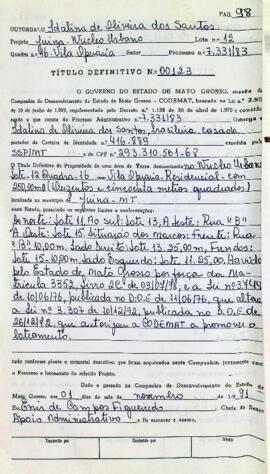 Pag. 98
OUTORGADO Idalina de Oliveira dos Santos
Projeto Juina-Núcleo Urbano Lote n.º 12
Quadra n.º 46-Vila Operária Setor Processo n.º 7.331/83
TÍTULO DEFINITIVO N.º 00123
O GOVERNO DO ESTADO DE MATO GROSSO, através da
Companhia de Desenvolvimento do Estado de Mato Grosso - CODEMAT, baseado na Lei n.º
10 de junho de 1969, regulamentado pelo Decreto n.º 1.138 de 30 de abril de 1970, e
o que consta do Processo Administrativo n.º 7.331/83 Outorga a
Idalina de Oliveira dos Santos, brasileira, casada
portador da Carteira de Identidade n.º 416.889
SSP/MT e do CPF n.º 293.310.561-68
O Título Definitivo de Propriedade de uma área de Terra denominada no Núcleo Urbano
Lote-12 Quadra-46 Vila Operária-Residencial-com
250,00m2 (Duzentos e cincoenta metros quadrado)
no município de Juina-MT
neste Estado, possuindo os seguintes limites e confrontações:
Ao Norte: Lote 11, Ao Sul: Lote 13, A Leste: Rua "B"
A Oeste: Lote 15. Situação dos Marcos: Frente: Rua
"B" 10,00m. Lado Direito: Lote 13.25,00m, Fundos:
Lote 15-10,00m, Lado Esquerdo: Lote 11.25,00. Havido
pelo Estado de Mato Grosso por força da Ma-
trícula 3352, livro 2C de 03/07/78, e a Lei nº 3.744
de 10/06/76, publicada no D.O.E de 11/06/76, que altera
a Lei nº 3.307 de 10/12/72, publicada no D.O.E de
26/12/72, que autorizou a CODEMAT a promover o
loteamento.
tudo conforme planta e memorial descritivo, que ficam arquivados nesta Companhia, juntamente com
o Processo e lotamento do referido Projeto.
Dado e passado na Companhia de Desenvolvimento do Estado de
Mato Grosso, em 01 dias de novembro de 1991
Eu Enir de Campos Figueiredo Chefe do
Apoio Administrativo o fiz escrever e assino.
Transcrito por Conferido por Visto